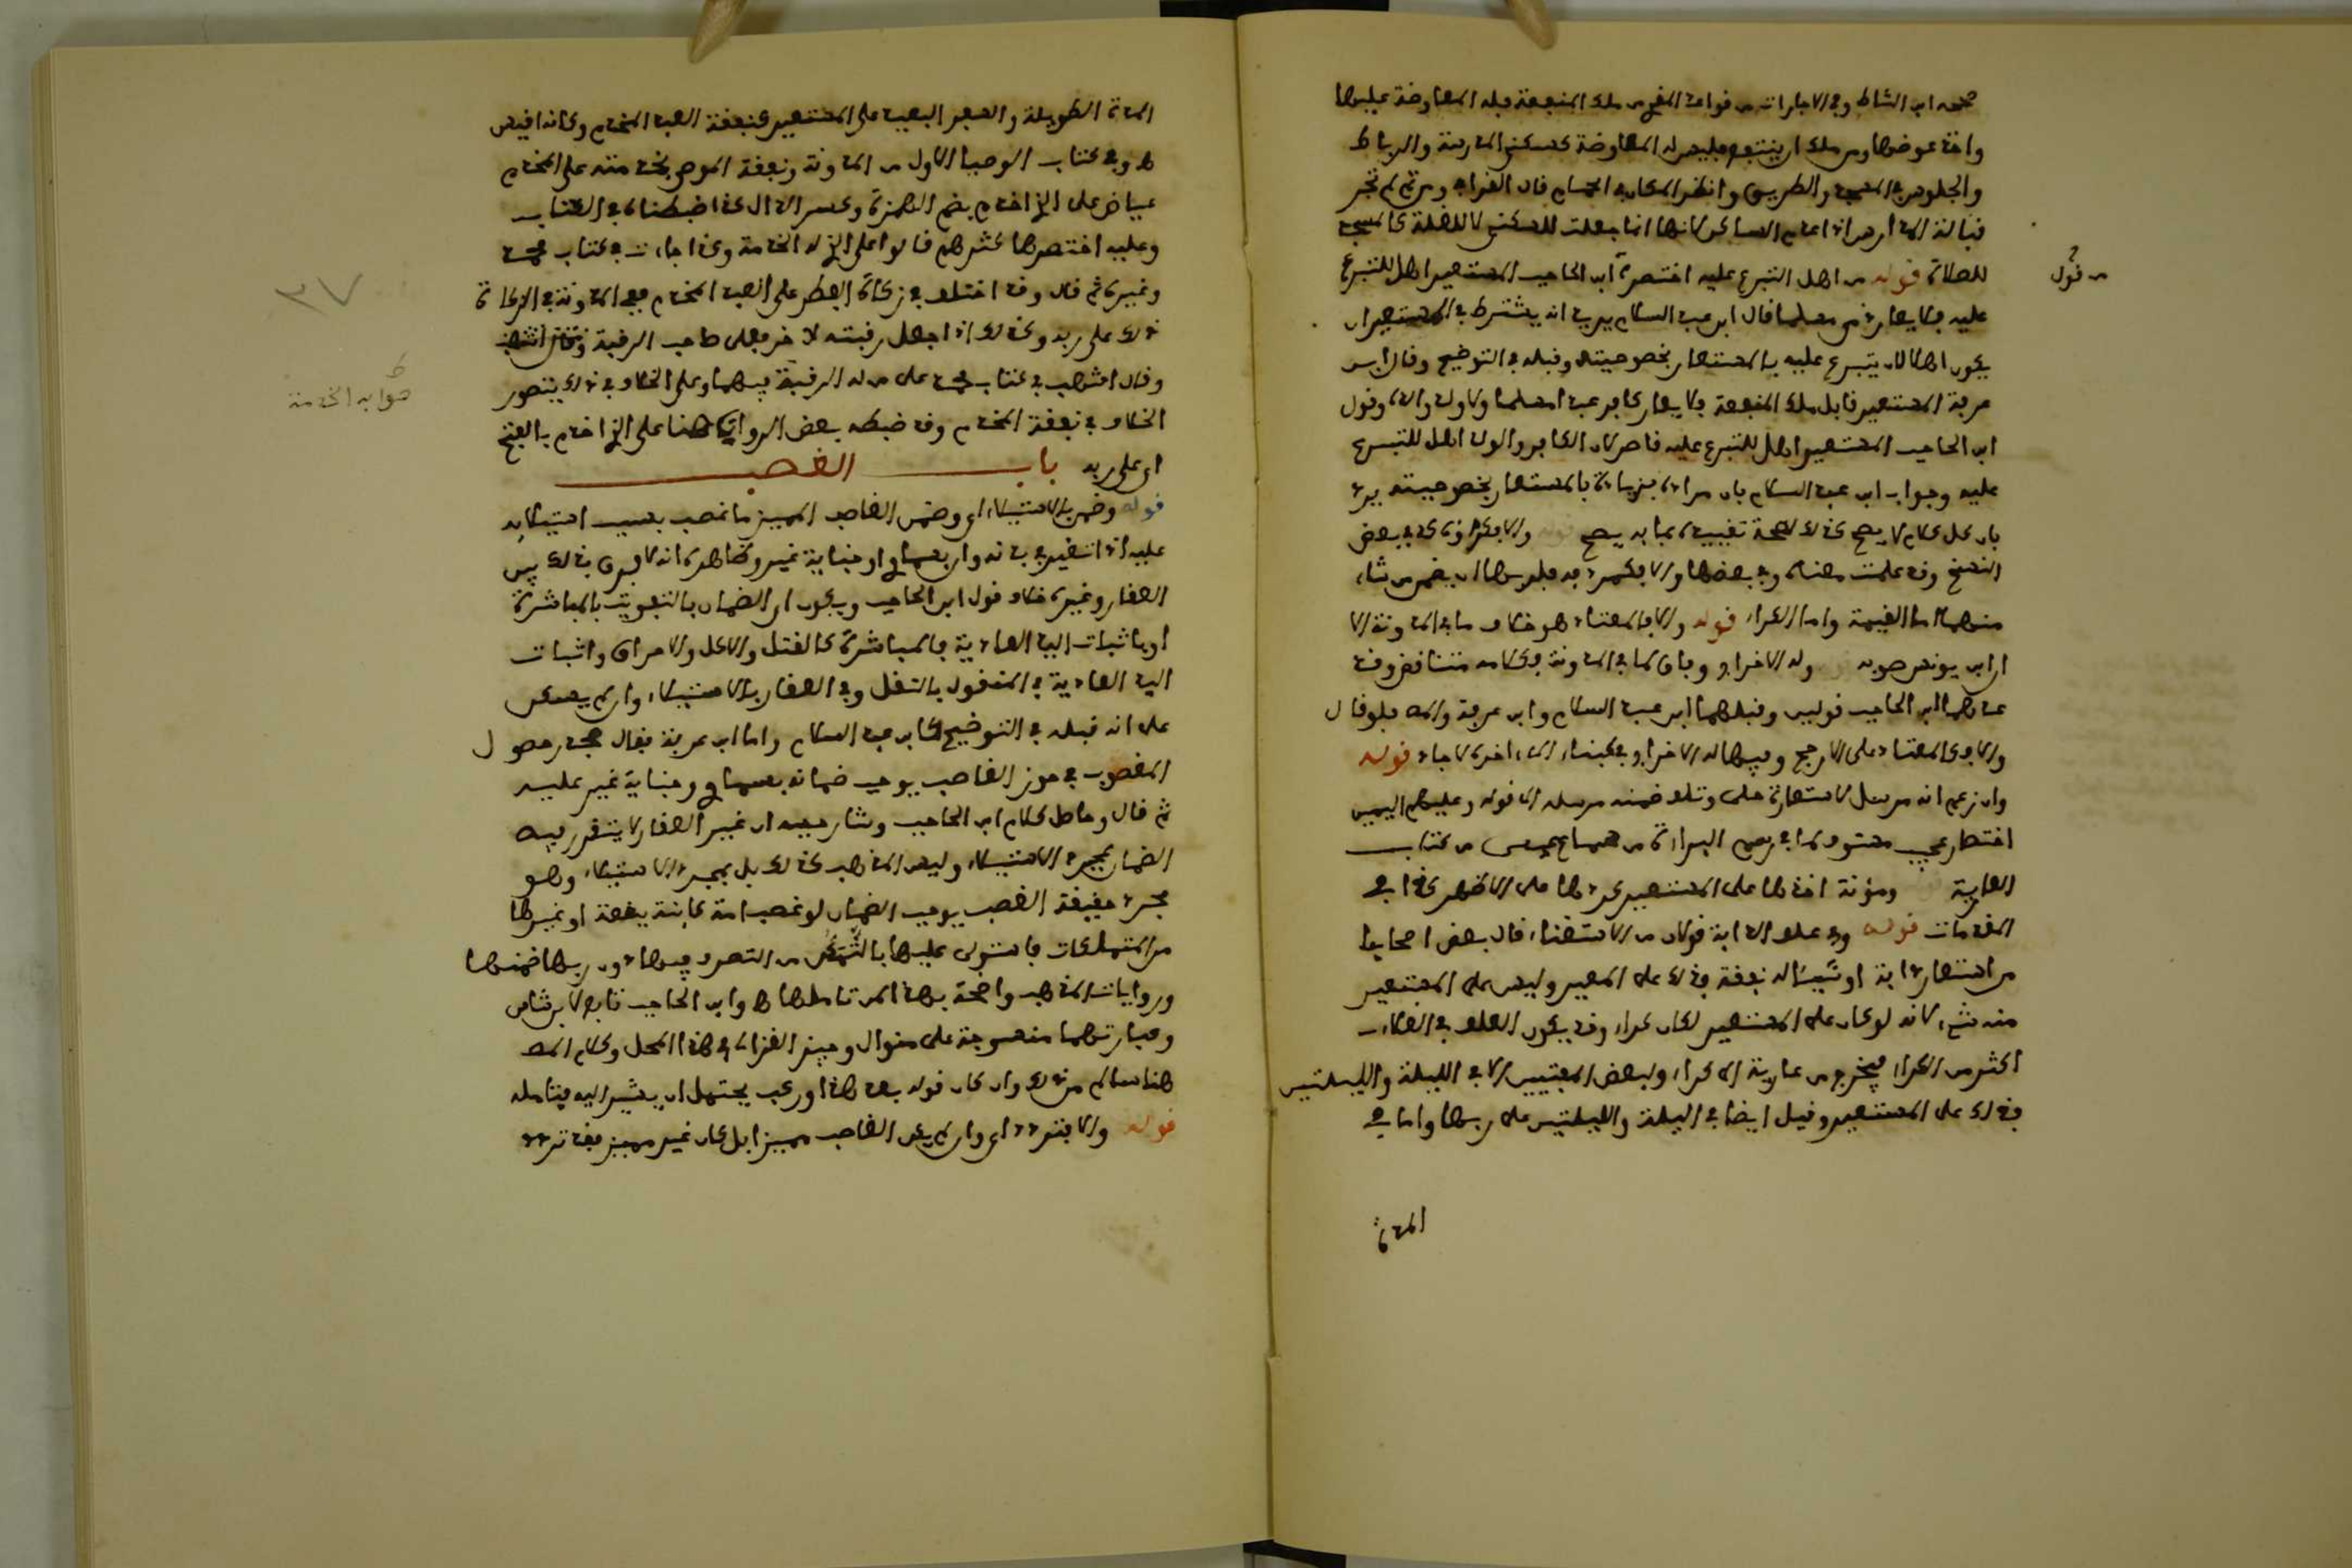 صححه ابن الشاط وفي الاجارات من قواعد المقري من ملك المنفعة فله المعاوضة عليها
واخذ عوضها ومن ملك ان ينتفع فليس له المعاوضة كسكنى المدرسة والرباط
والجلوس في المسجد والطريق وانظر المكان في الحمام قال القرافي ومن ثم لم تجز
قبالة الدار
للصلاة قوله من اهل التبرع عليه اختصر قول ابن الحاجب المستعير اهل للتبرع
عليه فلا يعار ذمي مسلما قال ابن عبد السلام يريد انه يشترط في المستعير ان
يكون اهلا لان يتبرع عليه بالمستعار بخصوصيته وقبله في التوضيح وقال ابن
عرفة المستعير قابل ملك المنفعة فلا يعار كافر عبدا مسلما ولا ولد والده وقول
ابن الحاجب المستعير اهل للتبرع عليه قاصر لان الكافر والولد اهل للتبرع
عليه وجواب ابن عبد السلام بان مراده بزيادة بالمستعار بخصوصيته يرد
بان كل كلام لا يصح كذلك لصحة تقييده بما به يصح قوله والا فكراؤه كذا في بعض
النسخ وقد علمت معناه وفي بعضها والا فكمردف فلربها ان يضمن من شاء
منهما اما القيمة واما الكراء قوله والا فالمعتاد هو خلاف ما في المدونة الا
ان ابن يونس صوبه وله الاخراج وفاقا لما في المدونة فكلامه متناقض وقد
عدهما ابن الحاجب قولين وقبلهما ابن عبد السلام وابن عرفة والمص فلو قال
والا فكالمعتاد على الارجح وفيها له الاخراج في كبناء الى اخره لاجاد قوله
وان زعم انه مرسل لاستعارة حلي وتلف ضمنه مرسله الى قوله وعليهم اليمين
اختصار عجيب مستوف لما في رسم البراءة من سماع عيسى من كتاب
العارية ومؤنة اخذها على المستعير كردها على الاظهر كذا في
المقدمات قوله وفي علف الدابة قولان من الاستغناء قال بعض اصحابنا
من استعار دابة او شيئا له نفقة فذلك على المعير وليس على المستعير
منه شيء لانه لو كان على المستعير لكان كراء وقد يكون العلف في الغلاء
اكثر من الكراء فيخرج من عارية الى كراء ولبعض المفتيين الا في الليلة والليلتين
فذلك على المستعير وقيل ايضا في الليلة والليلتين على ربها واما في
المدة
من قول
المدة الطويلة والسفر البعيد على المستعير كنفقة العبد المخدم وكانه اقيس
ط وفي كتاب الوصايا الاول من المدونة ونفقة الموصى بخدمته على المخدم
عياض على الذي اخدم بضم الهمزة وكسر الدال كذا ضبطناه في الكتاب
وعليه اختصرها اكثرهم قالوا على الذي له الخدمة وكذا جاءت في كتاب محمد
وغيره ثم قال وقد اختلف في زكاة الفطر على العبد المخدم ففي المدونة في الزكاة
ذلك على ربه وكذلك اذا جعل رقبته لاخر فعلى صاحب الرقبة
وقال اشهب في كتاب محمد على من له الرقبة فيهما وعلى الخلاف في ذلك يتصور
الخلاف في نفقة المخدم وقد ضبطه بعض الرواة هنا على الذي اخدم بالفتح
اي على ربه باب الغصب
قوله وضمن بالاستيلاء اي وضمن الغاصب المميز ما غصب بسبب استيلائه
عليه اذا انتفع به فاته وان بسماوي او جناية غيره وظاهره انه لا فرق في ذلك بين
العقار وغيره خلاف قول ابن الحاجب ويكون اي الضمان بالتفويت بالمباشرة
او باثبات اليد العادية فالمباشرة كالقتل والاكل والاحراق واثبات
اليد العادية في المنقول بالنقل وفي العقار بالاستيلاء وان لم يسكن
على انه قبله في التوضيح كابن عبد السلام واما ابن عرفة فقال مجرد حصول
المغصوب في حوز الغاصب يوجب ضمانه بسماوي وجناية غير عليه
ثم قال وحاصل كلام ابن الحاجب وشارحيه ان غير العقار لا يتقرر فيه
الضمان بمجرد الاستيلاء وليس المذهب كذلك بل بمجرد الاستيلاء وهو
مجرد حقيقة الغصب يوجب الضمان لو غصب امة كائنة ببقعة او غيرها
من المتملكات فاستولى عليها بالتمكن من التصرف فيها دون ربها ضمنها
وروايات المذهب واضحة بهذا لمن تاملها ط وابن الحاجب تابع لابن شاس
وعبارتهما منسوجة على منوال وجيز الغزالي في هذا المحل وكلام المص
هنا سالم من ذلك وان كان قوله بعد هذا او ركب يحتمل ان يشير اليه فتامله
قوله والا فتردد اي وان لم يكن الغاصب مميزا بل كان غير مميز فقد تردد
٣٧
ط
صوابه الخدمة